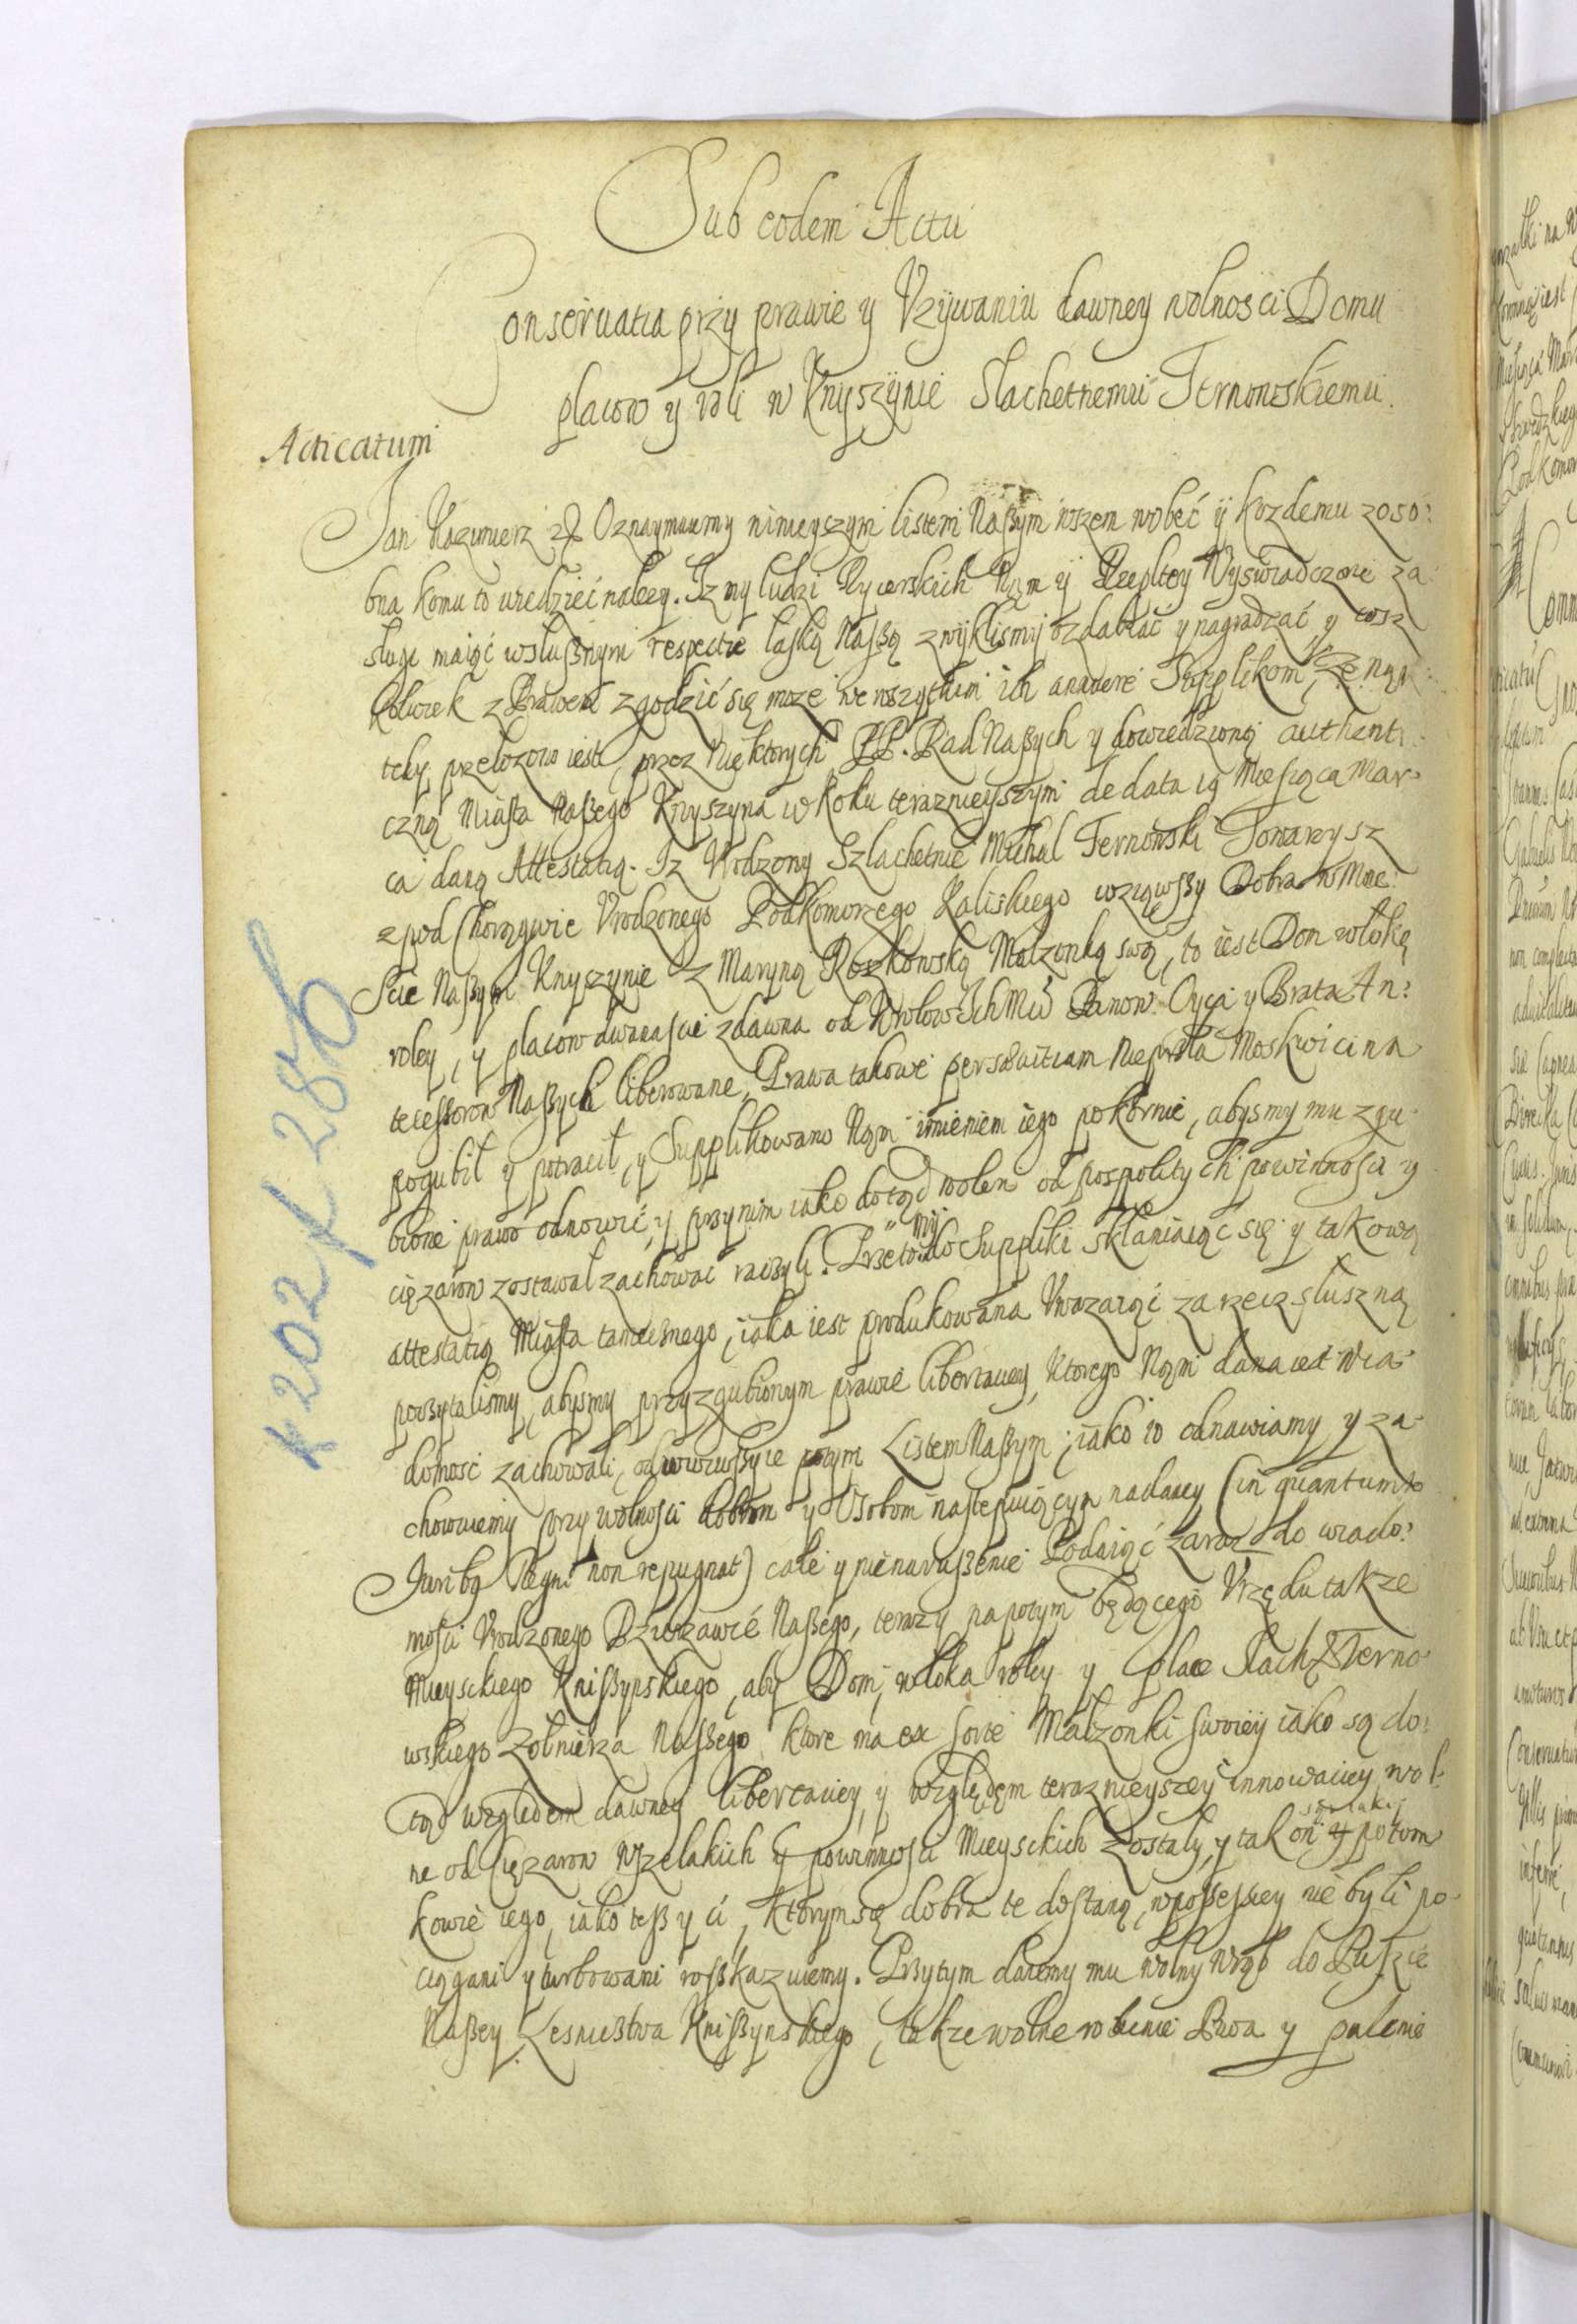 Sub eodem Actu
Conseruatia przy prawie y Vzywaniu dawney wolności Domu
placow y roli w Knyszynie Slachetnemu Ternowskiemu.
Acticatum
Jan Kazimierz &c Oznaymuiemy ninieyszym listem Naßym wszem wobec y kozdemu zoso:
bna komu to wiedzieć nalezy. Iz my ludzi Rycerskich Nąm y Rzepltey Vyswiadczone za
slugi maiąc wslußnym respectie laską Naßą zwyklismy ozdabiać y nagradzać, y cosz
kolwiek z Prawem zgodzić się moze we wszytkim ich annuere Supplikom, Ze nąm
tedy przelozono iest, przez niektorych PP. Rad Naßych y dowiedzioną authenti
czną Miasta Naßego Knyszyna w Roku terazneyszym de data 19 Miesiąca Mar:
ca daną Attestatią. Iz Vrodzony Szlachetnie Michal Ternowski Towarzysz
z pod Chorągwie Vrodzonego Podkomorzego Kaliskiego wziąwßy Dobra w Mie:
scie Naßym Knyszynie z Maryną Roszkowską Malzonką swą, to iest Dom wloką
roley, y placow dwanascie zdawna od Krolow Ich Mći Panow Oyca y Brata An:
tecessorow Naßych liberowane, Prawa takowe per saevitiam Nieprzla Moskwicina
pogubil y potracil, y Supplikowano Nąm imieniem iego pokornie, abysmy mu zgu
bione prawo odnowić, y przy nim iako dotąd wolen od pospolitych powinnosci y
cięzarow zostawal zachować raczyli. Przeto my do Suppliki sklaniaiąc się y takową
attestatią Miasta tamecznego, iaka iest produkowana Vwazaiąc za rzecz sluszną
poczytalismy, abysmy przy zgubionym prawie libertaciey, ktorego Nąm dana iest wia
domosć zachowali, odnowiwßy ie tym Listem Naßym, iako to odnawiamy y za
chowuiemy przy wolnosci dobrom y Osobom następuiącym nadaney (in quantum
Iuribq Regni non repugnat) cale y nienarußenie Podaiąć zaraz do wiado:
mosci Vrodzonego Dzierzawce Naßego, teraz y napotym będącego Vrzędu takze
Mieysckiego Knißynskiego, aby Dom, wloka roley y place Slach Terno
wskiego Zolnierza Naßego ktore ma ex sorte Malzonki swoiey iako są do:
tąd względem dawney libertaciey, y względem teraznieyszey innowaciey wol:
ne od cięzarow Wszelakich y powinnosci Mieysckich zostaly, y tak on y potom
kowie iego, iako teß y ci, ktorym są dobra te dostaną, w possessiey nie byli po
ciągani y turbowani roßkazuiemy. Przytym daiemy mu wolny wrąb do Puscze
Naßey Lesnictwa Knißynskiego, takze wolne robienie Piwa y palenie
K 202 f 286